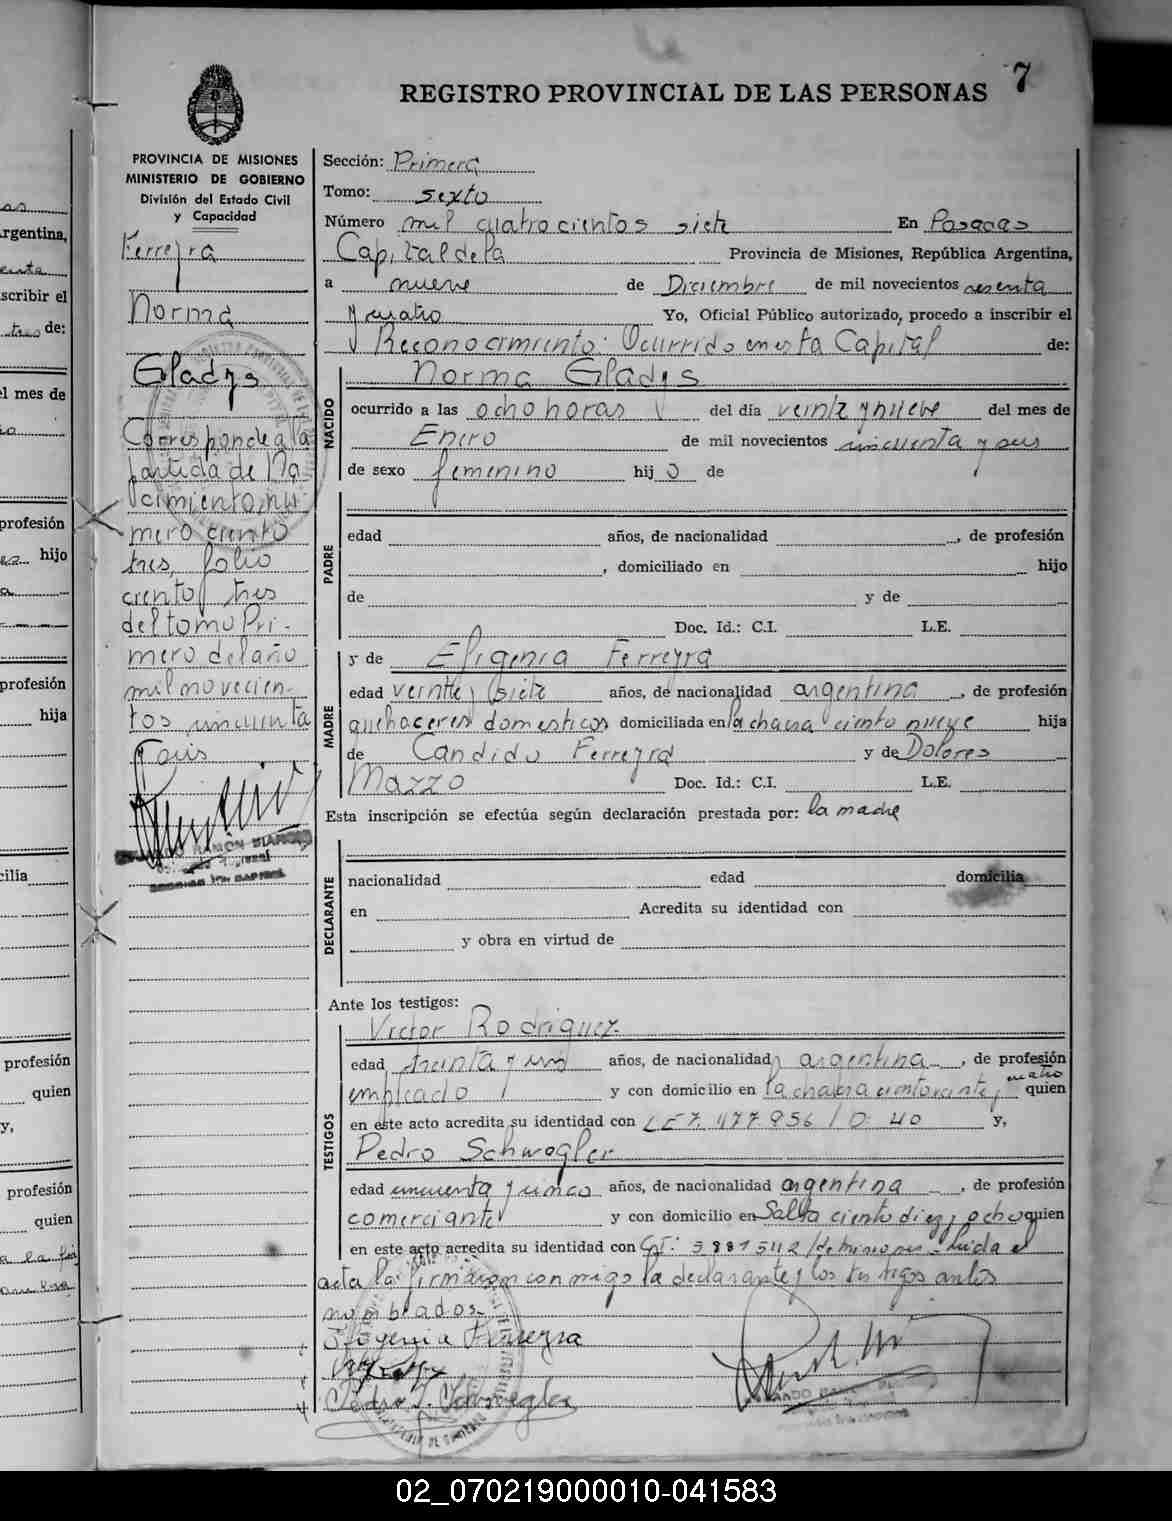 7
REGISTRO PROVINCIAL DE LAS PERSONAS
PROVINCIA DE MISIONES
MINISTERIO DE GOBIERNO
División del Estado Civil
y Capacidad
Ferreyra
Norma
Gladys
Corresponde a la
partida de Na
cimiento, nú
mero ciento
tres, folio
ciento tres
del tomo Pri-
mero del año
mil novecien-
tos cincuenta
y seis
Sección: Primera
Tomo: sexto
Número mil cuatrocientos siete En Posadas
Capital de la Provincia de Misiones, República Argentina,
a nueve de Diciembre de mil novecientos sesenta
y cuatro Yo, Oficial Público autorizado, procedo a inscribir el
Reconocimiento: Ocurrido en esta Capital de:
Norma Gladys
NACIDO
ocurrido a las ocho horas del día veinte y nueve del mes de
Enero de mil novecientos cincuenta y seis
de sexo femenino hij o de
PADRE
edad años, de nacionalidad , de profesión
, domiciliado en hijo
de y de
Doc. Id.: C.I. L.E.
y de Efigenia Ferreyra
MADRE
edad veinte y siete años, de nacionalidad argentina , de profesión
quehaceres domesticos domiciliada en la chacra ciento nueve hija
de Candido Ferreyra y de Dolores
Mazzo Doc. Id.: C.I. L.E.
Esta inscripción se efectúa según declaración prestada por: la madre
DECLARANTE
nacionalidad edad domicilia
en Acredita su identidad con
y obra en virtud de
Ante los testigos:
Victor Rodriguez
TESTIGOS
edad treinta y un años, de nacionalidad argentina , de profesión
empleado y con domicilio en la chacra ciento veinte y cuatro quien
en este acto acredita su identidad con LE 7.477.956 / D. 40 y,
Pedro Schwegler
edad cincuenta y cinco años, de nacionalidad argentina , de profesión
comerciante y con domicilio en Salta ciento diez y ocho quien
en este acto acredita su identidad con de Misiones - Leida el
acta la firmaron conmigo la declarante y los testigos antes
nombrados.-
Efigenia Ferreyra
Pedro J. Schwegler
02_070219000010-041583